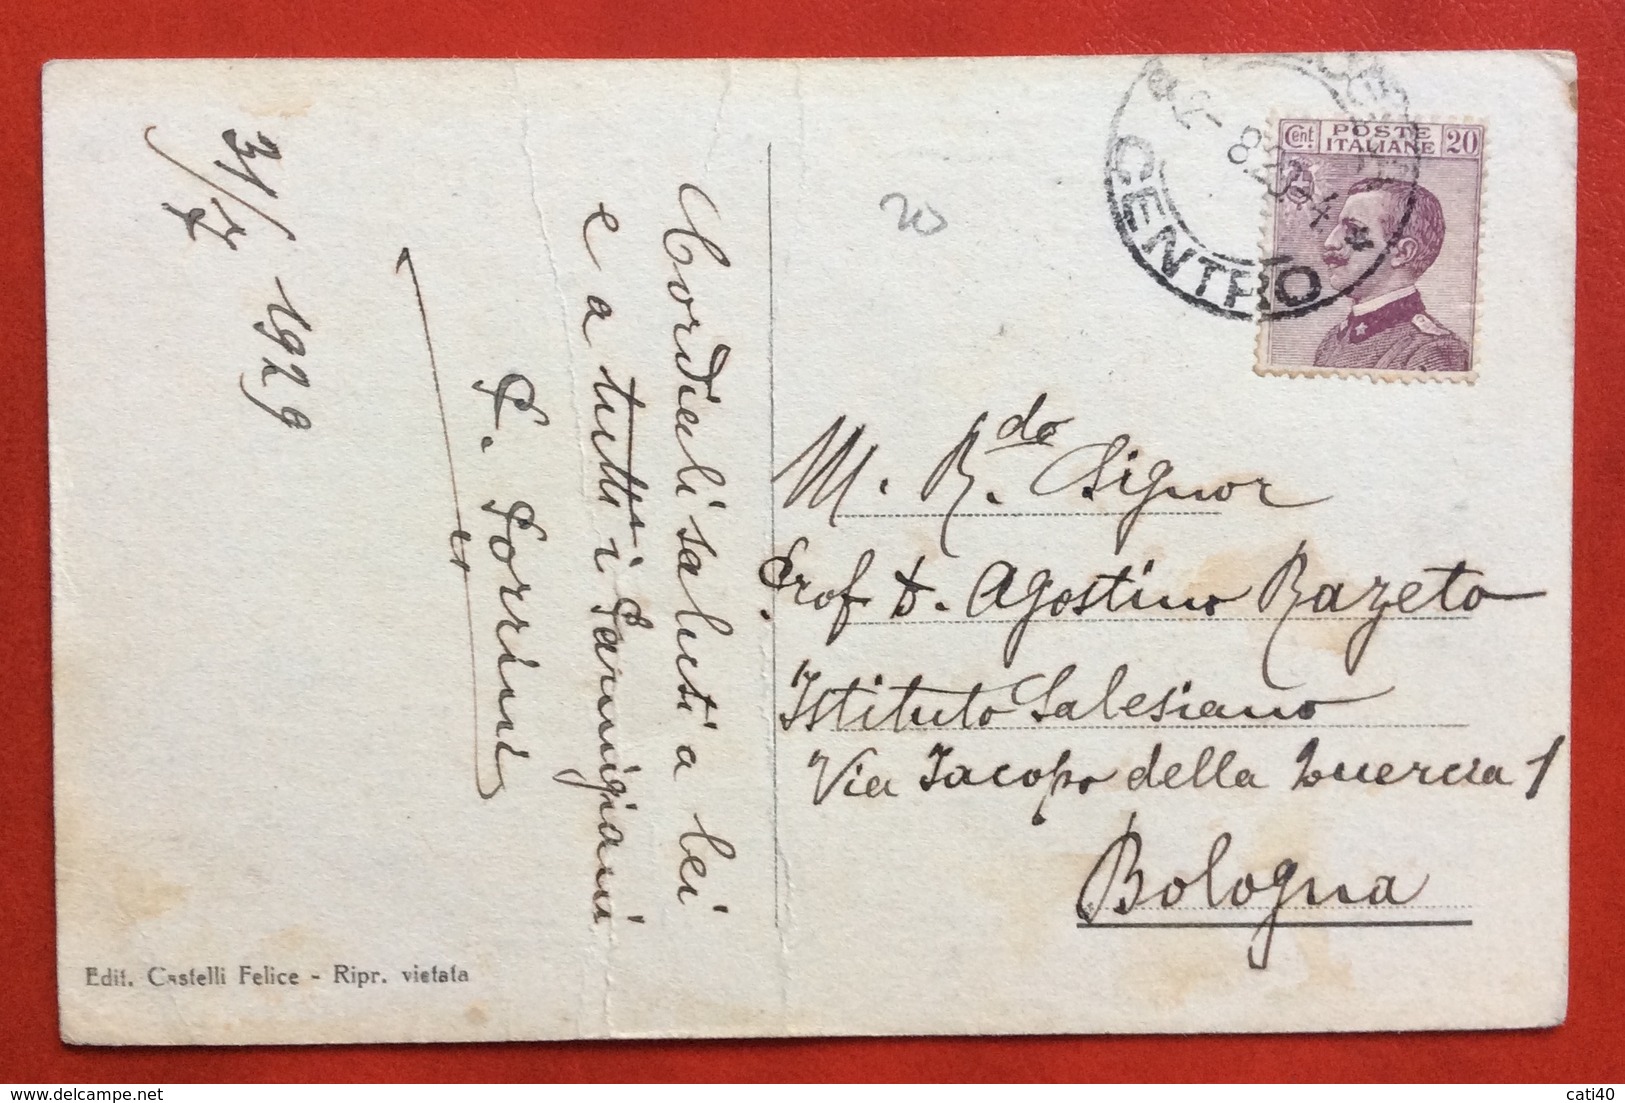 31/7 1929
Cordiali saluti a lei
e a tutti i Parmigiani
Edit. Castelli Felice - Ripr. vietata
20
CENTRO
Cent. POSTE ITALIANE 20
M. R.do Signor
Prof. D. Agostino Razeto
Istituto Salesiano
Via Jacopo della Quercia 1
Bologna
cati40